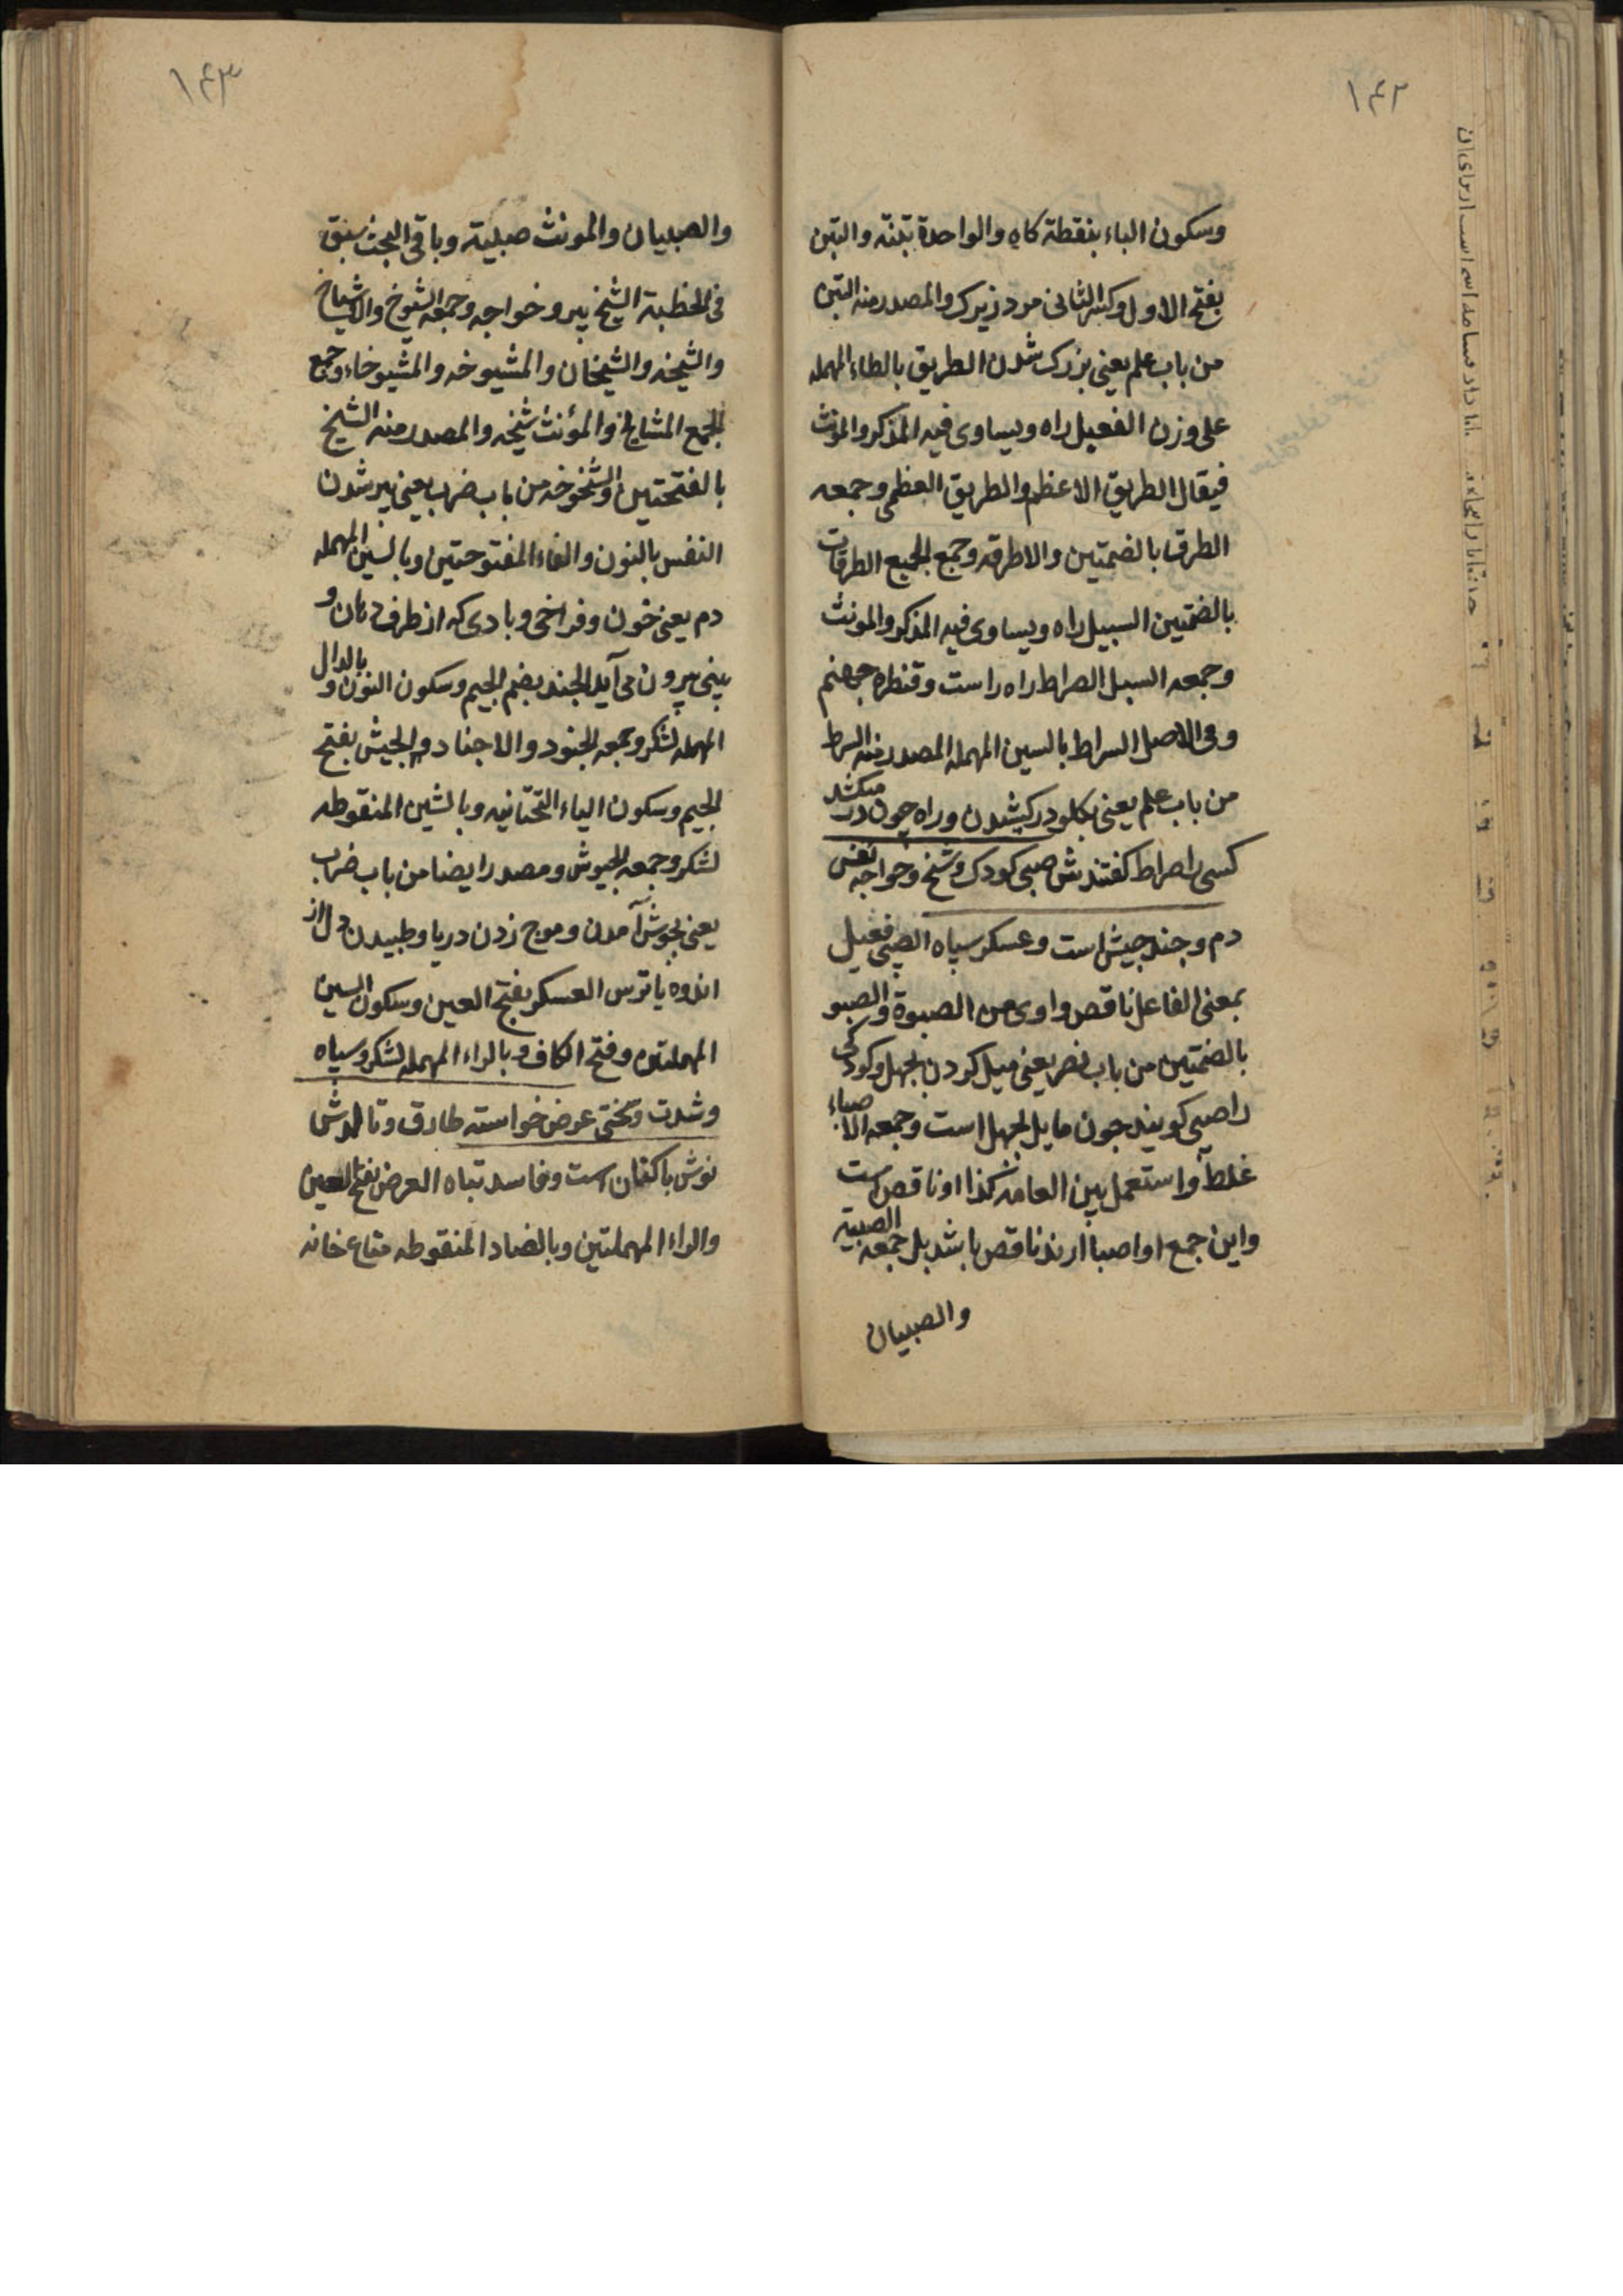 ١٤٢
وسكون الباء بنقطة كاه والواحدة تبنة والتبن
بفتح الاول وكسر الثانى مرد زيرك والمصدر منه التبن
من باب علم يعنى بزرك شدن الطريق بالطاء المهمله
على وزن الفعيل راه ويساوى فيه المذكر والمونث
فيقال الطريق الاعظم والطريق العظمى وجمعه
الطرق بالضمتين والاطرقه وجمع الجمع الطرقات
بالضمتين السبيل راه ويساوى فيه المذكر والمونث
وجمعه السبل الصراط راه راست وقنطره جهنم
وفى الاصل السراط بالسين المهمله المصدر منه السرط
من باب علم يعنى بكلو در كشيدن وراه چون در ميكشد
كسى را صراط كفتندش صبى كودك وشيخ وخواجه نفس
دم وجند جيش است وعسكر سپاه الصبى فعيل
بمعنى الفاعل ناقص واوى من الصبوة والصبو
بالضمتين من باب نصر يعنى ميل كردن بجهل وكودكى
را صبى كويند جون مايل بجهل است وجمعه الاصباء
غلط واستعمل بين العامه كذا او ناقص است
واين جمع او اصبا ارند ناقص باشد بل جمعه الصبية
والصبيان
١٤٣
والصبيان والمونث صبية وباقى البحث سبق
فى الخطبة الشيخ پير وخواجه وجمعه الشيوخ والاشياخ
والشيخه والشيخان والمشيوخه والمشيوخاء وجمع
الجمع المشايخ والمؤنث شيخه والمصدر منه الشيخ
بالفتحتين والشيخوخه من باب ضرب يعنى پير شدن
النفس بالنون والفاء المفتوحتين وبالسين المهمله
دم يعنى خون وفراخى وبادى كه از طرف دهان و
بينى بيرون مى آيد الجند بضم الجيم وسكون النون وبالدال
المهمله لشكر وجمعه الجنود والاجناد والجيش بفتح
الجيم وسكون الياء التحتانيه وبالشين المنقوطه
لشكر وجمعه الجيوش ومصدر ايضا من باب ضرب
يعنى بجوش آمدن وموج زدن دريا وطپيدن دل از
اندوه يا ترس العسكر بفتح العين وسكون السين
المهملتين وفتح الكاف وبالراء المهمله لشكر وسپاه
وشدت وسختى عرض خواسته طارف وتالدش
نوش با كتان است وفاسد تباه العرض بفتح العين
والراء المهملتين وبالضاد المنقوطه متاع خانه